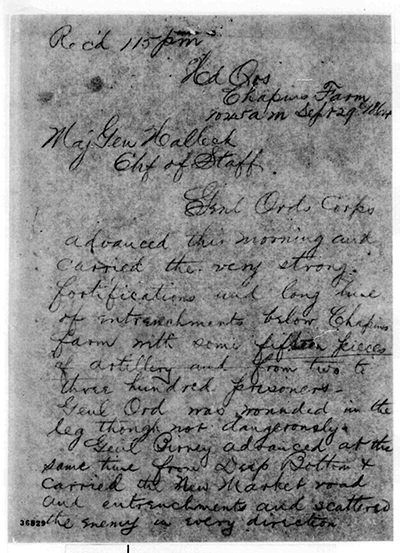 Rec'd 115 pm
Hd Qrs
Chapins Farm
1045 a m Sept 29" 1864
Maj Gen Halleck
Chf of Staff
Genl Ords Corps
advanced this morning and
carried the very strong
fortifications and long line
of entrenchments below Chapins
farm with some fifteen pieces
of artillery and from two to
three hundred prisoners -
Genl Ord was wounded in the
leg though not dangerously.
Genl Birney advanced at the
same time from Deep Bottom &
carried the New Market road
and entrenchments and scattered
the enemy in every direction
36829